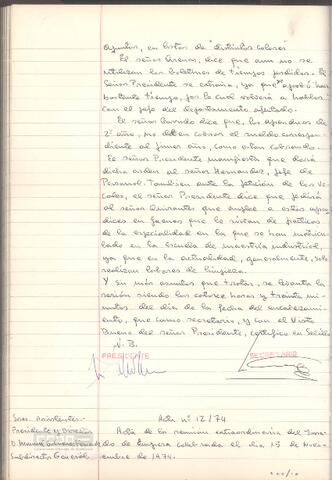 apuntes, en listas de distintos colores.
El señor Arenas, dice que aun no se
utilizan los boletines de tiempos perdidos. El
Señor Presidente se extraña, ya que se aprobó hace
bastante tiempo, por lo cual volverá a hablar
con el jefe del departamento afectado.
El señor Garrido dice que, los aprendices de
2º año, no deben cobrar el sueldo correspon-
diente al primer año, como están cobrando.
El señor Presidente manifiesta que dará
dicha orden al señor Hernandez, Jefe de
Personal. Tambien ante la petición de los Vo-
cales, el señor Presidente dice que pedirá
al señor Quirantes que emplee a estos apren-
dices en faenas que le sirvan de prácticas
de la especialidad en la que se han matricu-
lado en la Escuela de maestría industrial,
ya que en la actualidad, generalmente, solo
realizan labores de limpieza.
Y sin mas asuntos que tratar, se levanta la
sesión siendo las catorce horas y treinta mi-
nutos del día de la fecha del encabezamien-
to, que como secretario, y con el Visto
Bueno del señor Presidente, certifico en Sevilla
V. B.
PRESIDENTE SECRETARIO
Sres. Asistentes.- Acta nº 12/74
Presidente y Director Acta de la reunión extraordinaria del Jura-
do de Empresa celebrada el día 15 de Novi-
Subdirector General embre de 1974.
.../...